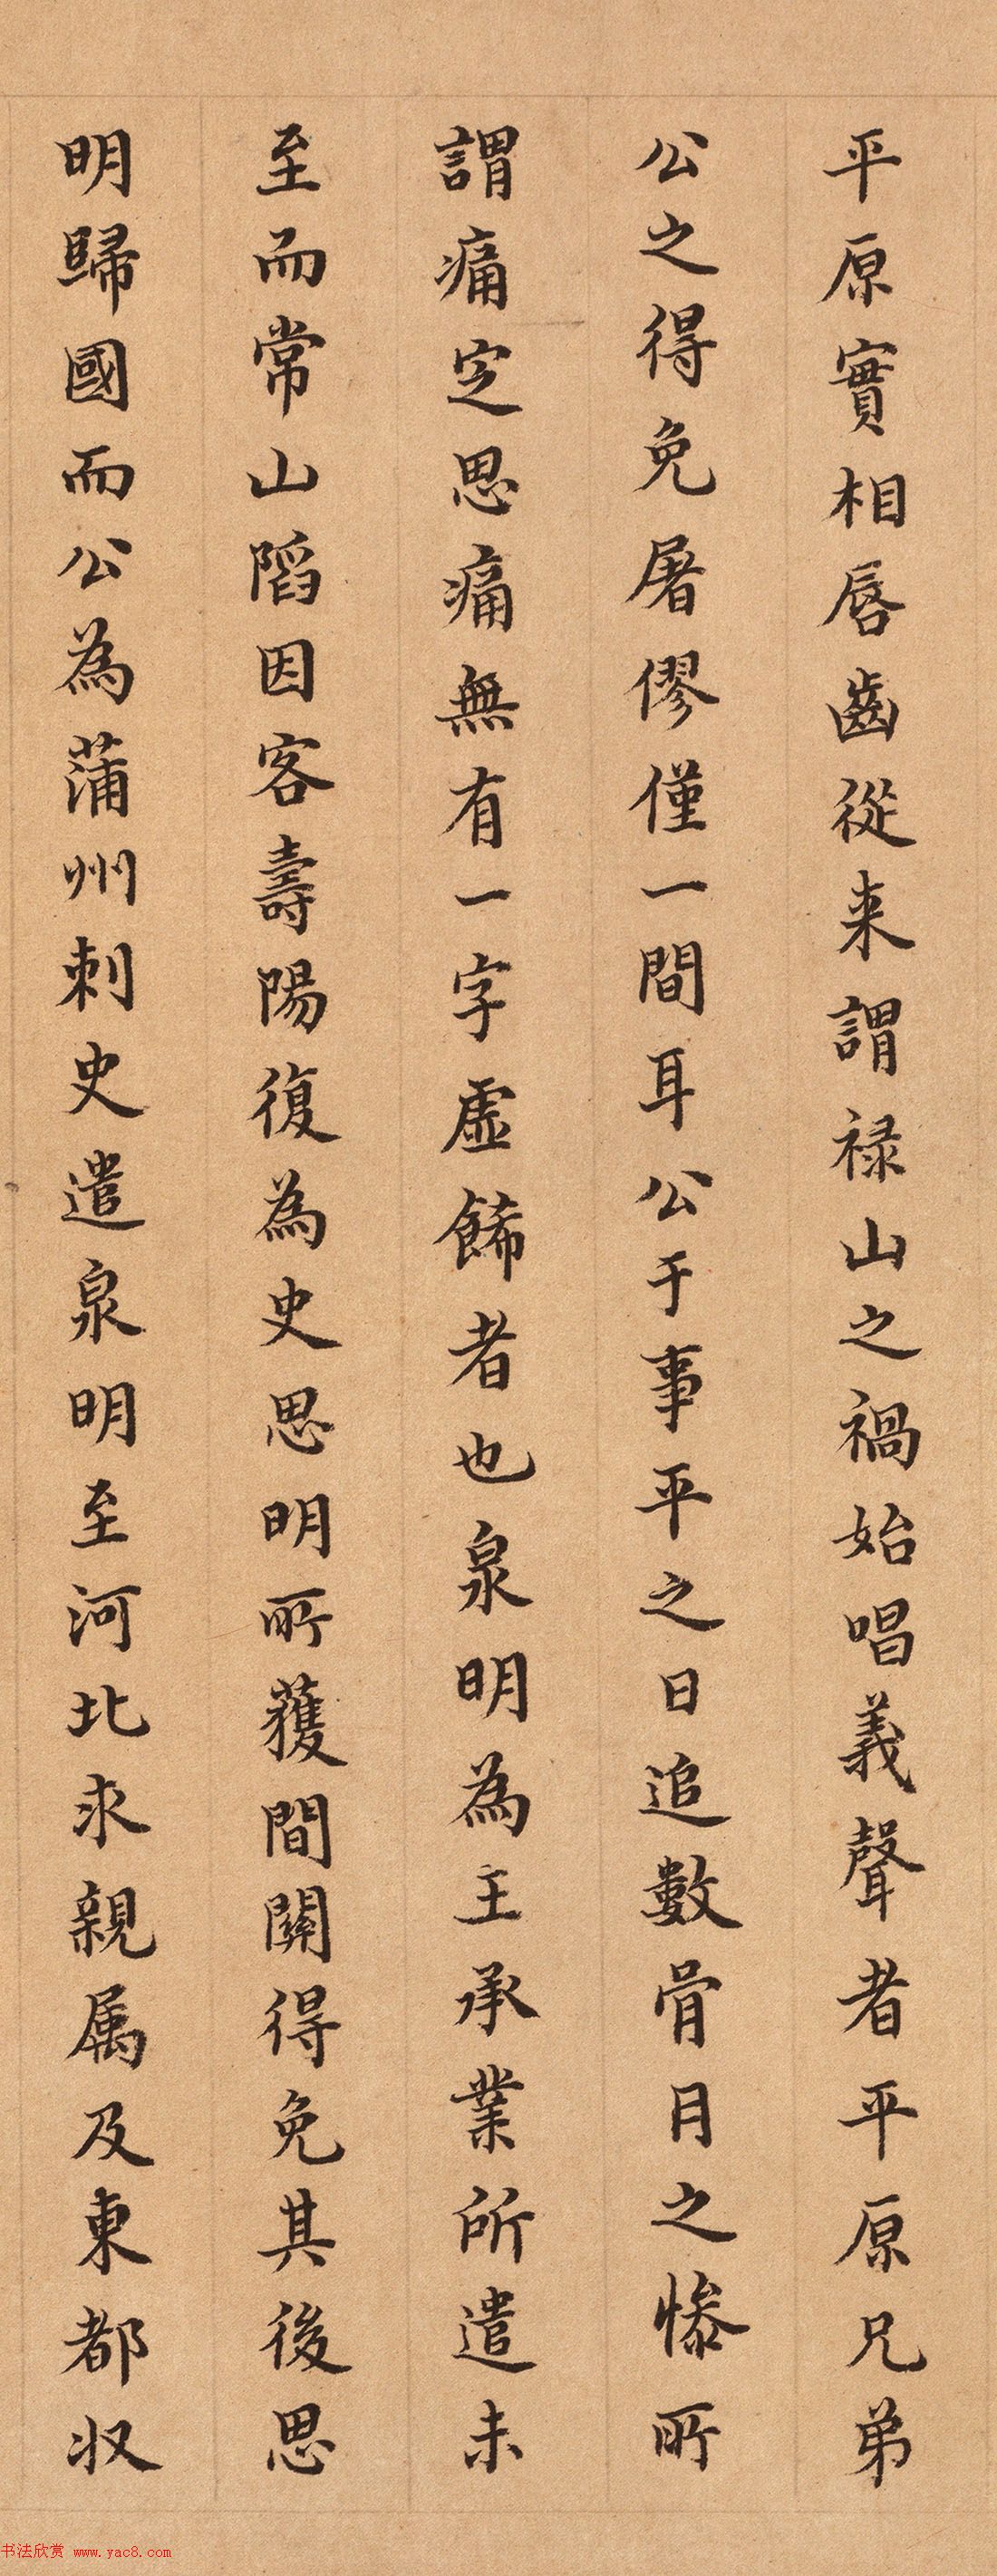 平原實相唇齒從来謂禄山之禍始唱義聲者平原兄弟
公之得免屠僇僅一間耳公于事平之日追數骨月之慘所
謂痛定思痛無有一字虛餙者也泉明為王承業所遣未
至而常山陷因客壽陽復為史思明所獲間關得免其後思
明歸國而公為蒲州刺史遣泉明至河北求親属及東都収
书法欣赏 www.yac8.com